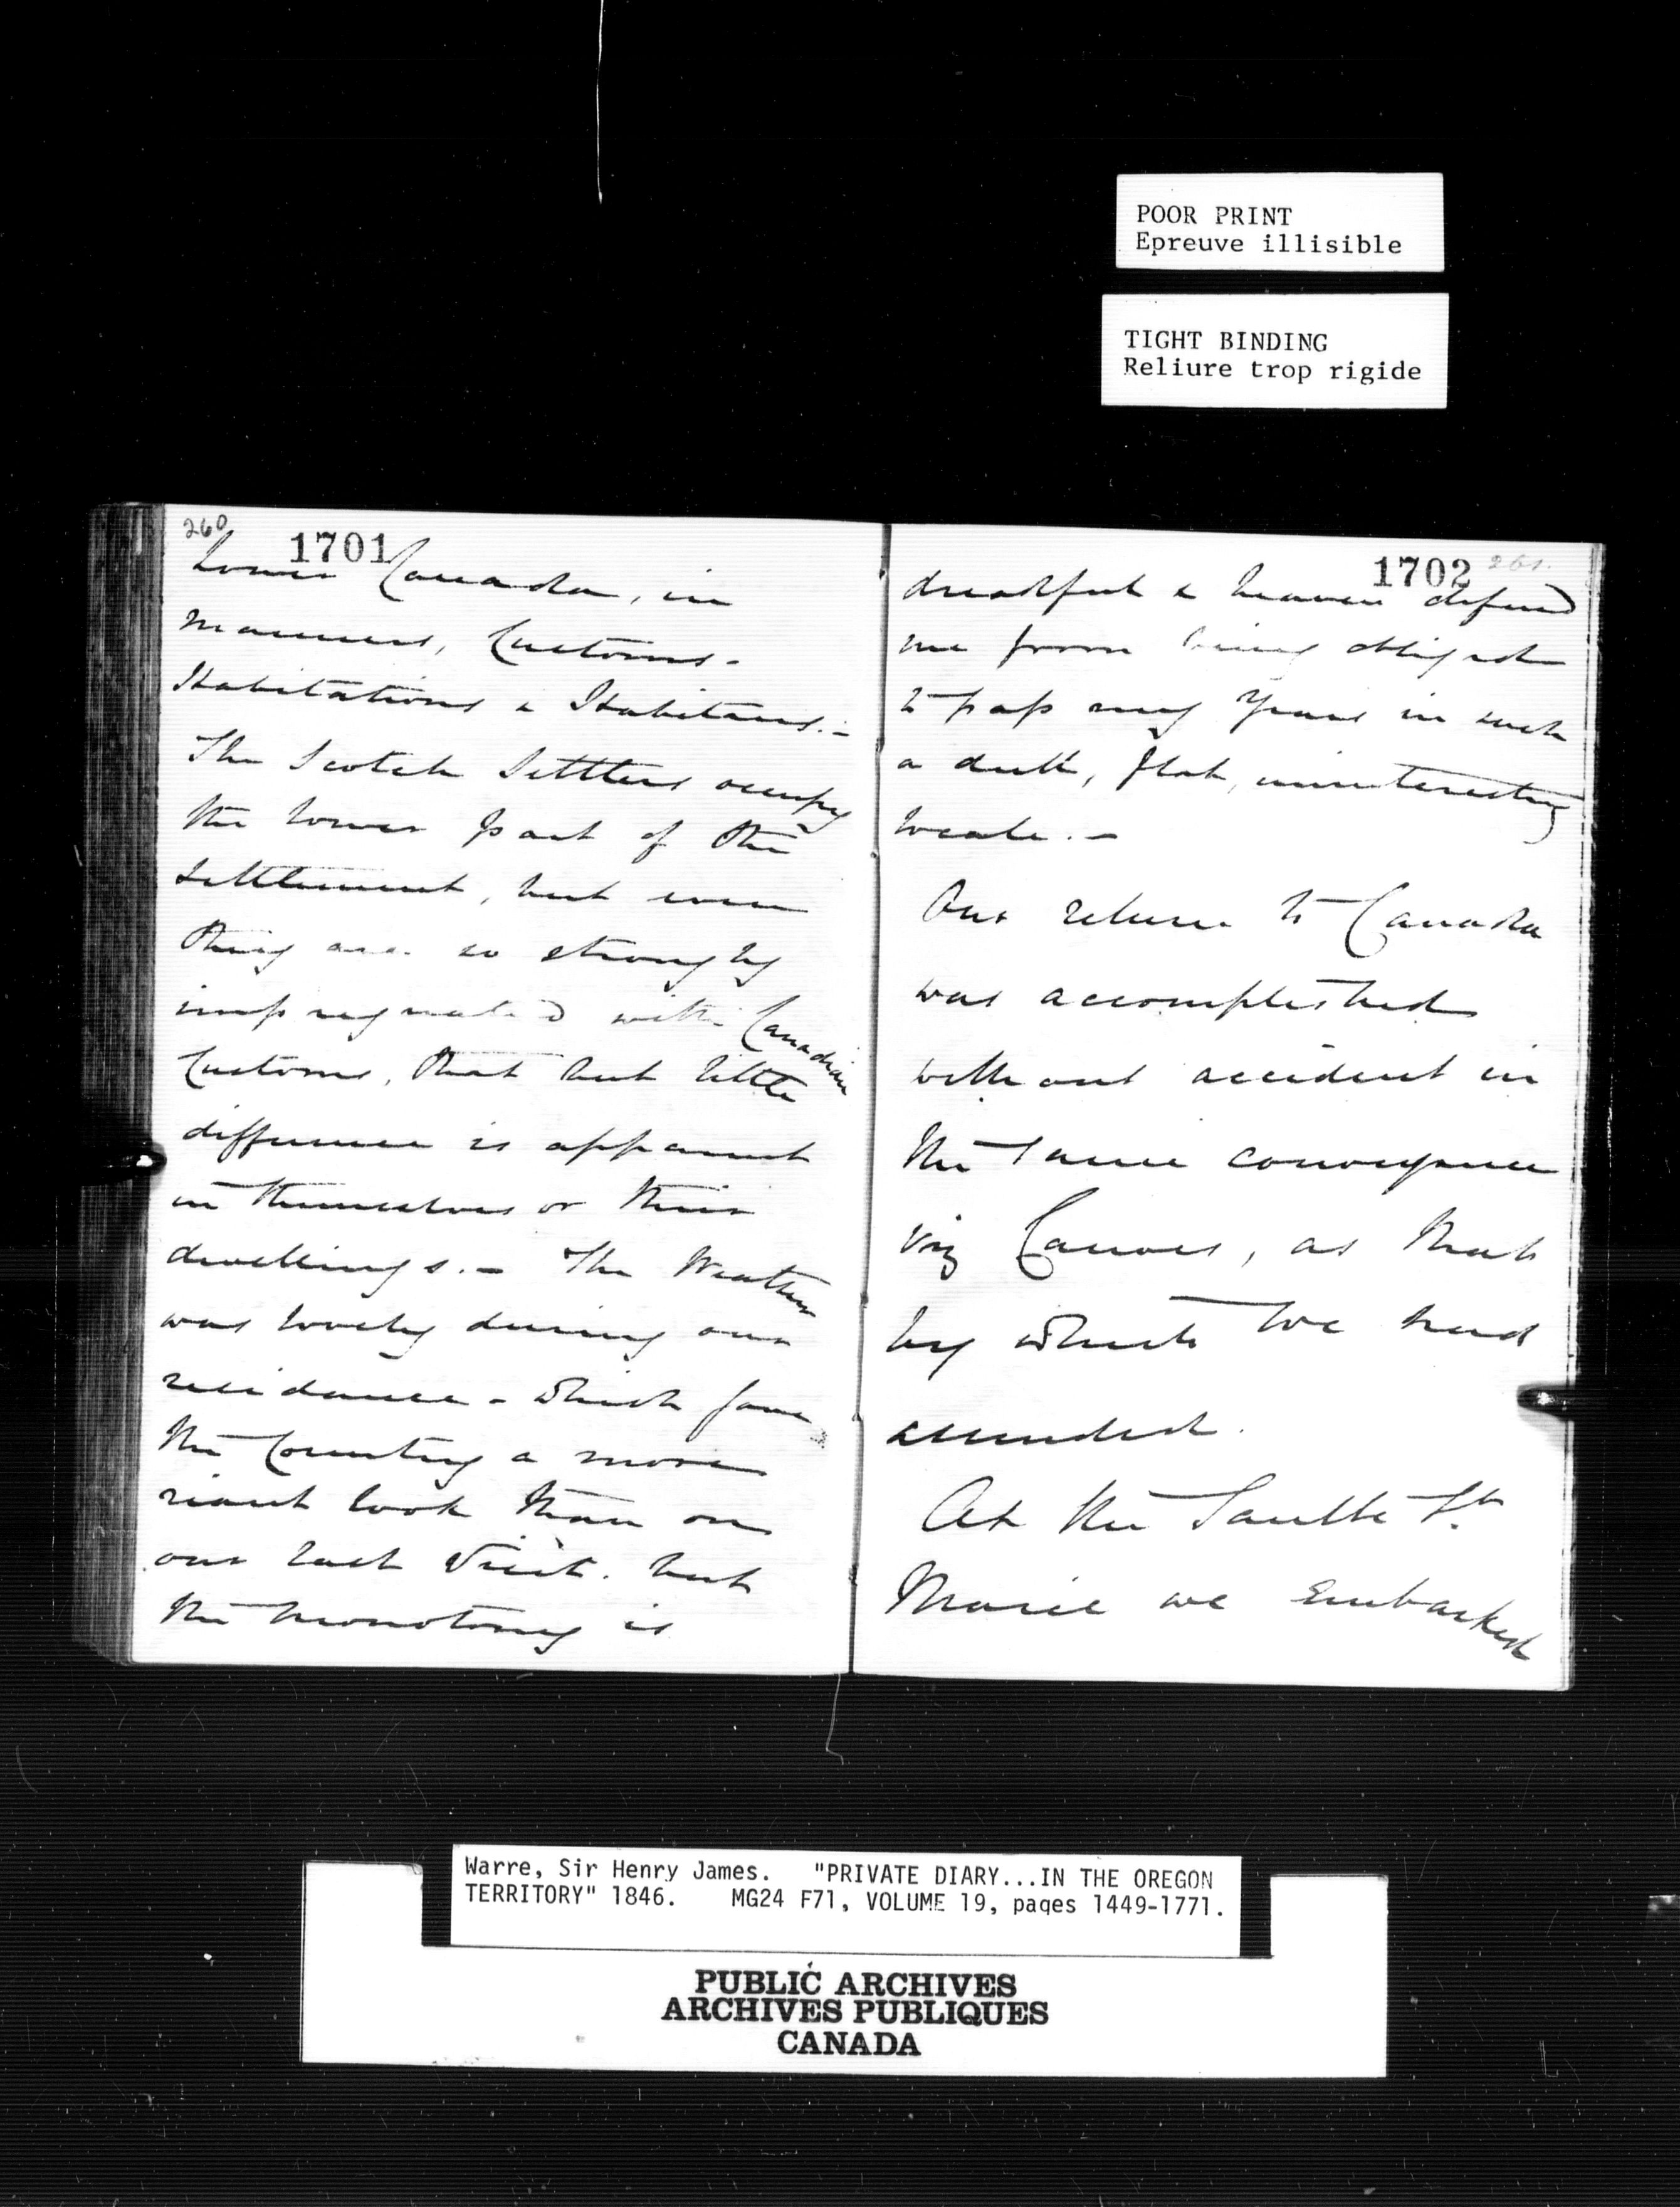 POOR PRINT
Epreuve illisible
TIGHT BINDING
Reliure trop rigide
260
1701
Lower Canada, in
manners, Customs -
Habitations & Habitans. -
The Scotch Settlers occupy
the lower part of the
Settlement, but even
they are so strongly
impregnated with Canadian
Customs, that but little
difference is apparent
in themselves or their
dwellings. - The Weather
was lovely during our
residence - which gave
the Country a more
riant look than on
our last Visit. but
the monotony is
1702
261.
dreadful & heaven defend
me from being obliged
to pass my Years in such
a dull, flat, uninteresting
locale. -
Our return to Canada
was accomplished
without accident in
the same conveyance
viz Canoes, as that
by which we had
ascended.
At the Saulte St.
Marie we Embarked
Warre, Sir Henry James. "PRIVATE DIARY...IN THE OREGON
TERRITORY" 1846. MG24 F71, VOLUME 19, pages 1449-1771.
PUBLIC ARCHIVES
ARCHIVES PUBLIQUES
CANADA